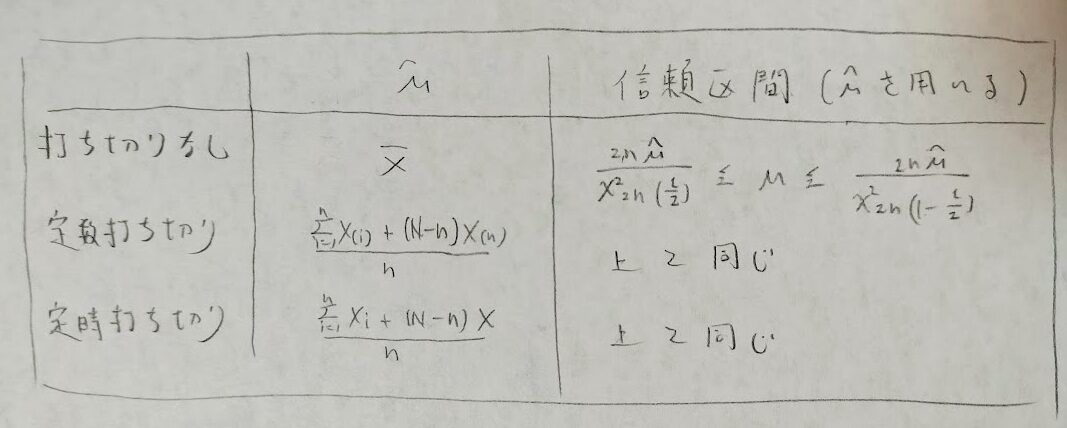 μ̂ 信頼区間 (μ̂を用いる)
打ち切りなし X̄ 2nμ̂/χ²2n(ε/2) ≦ μ ≦ 2nμ̂/χ²2n(1-ε/2)
定数打ち切り (Σ[i=1..n] X(i) + (N-n)X(n))/n 上と同じ
定時打ち切り (Σ[i=1..n] Xi + (N-n)X)/n 上と同じ